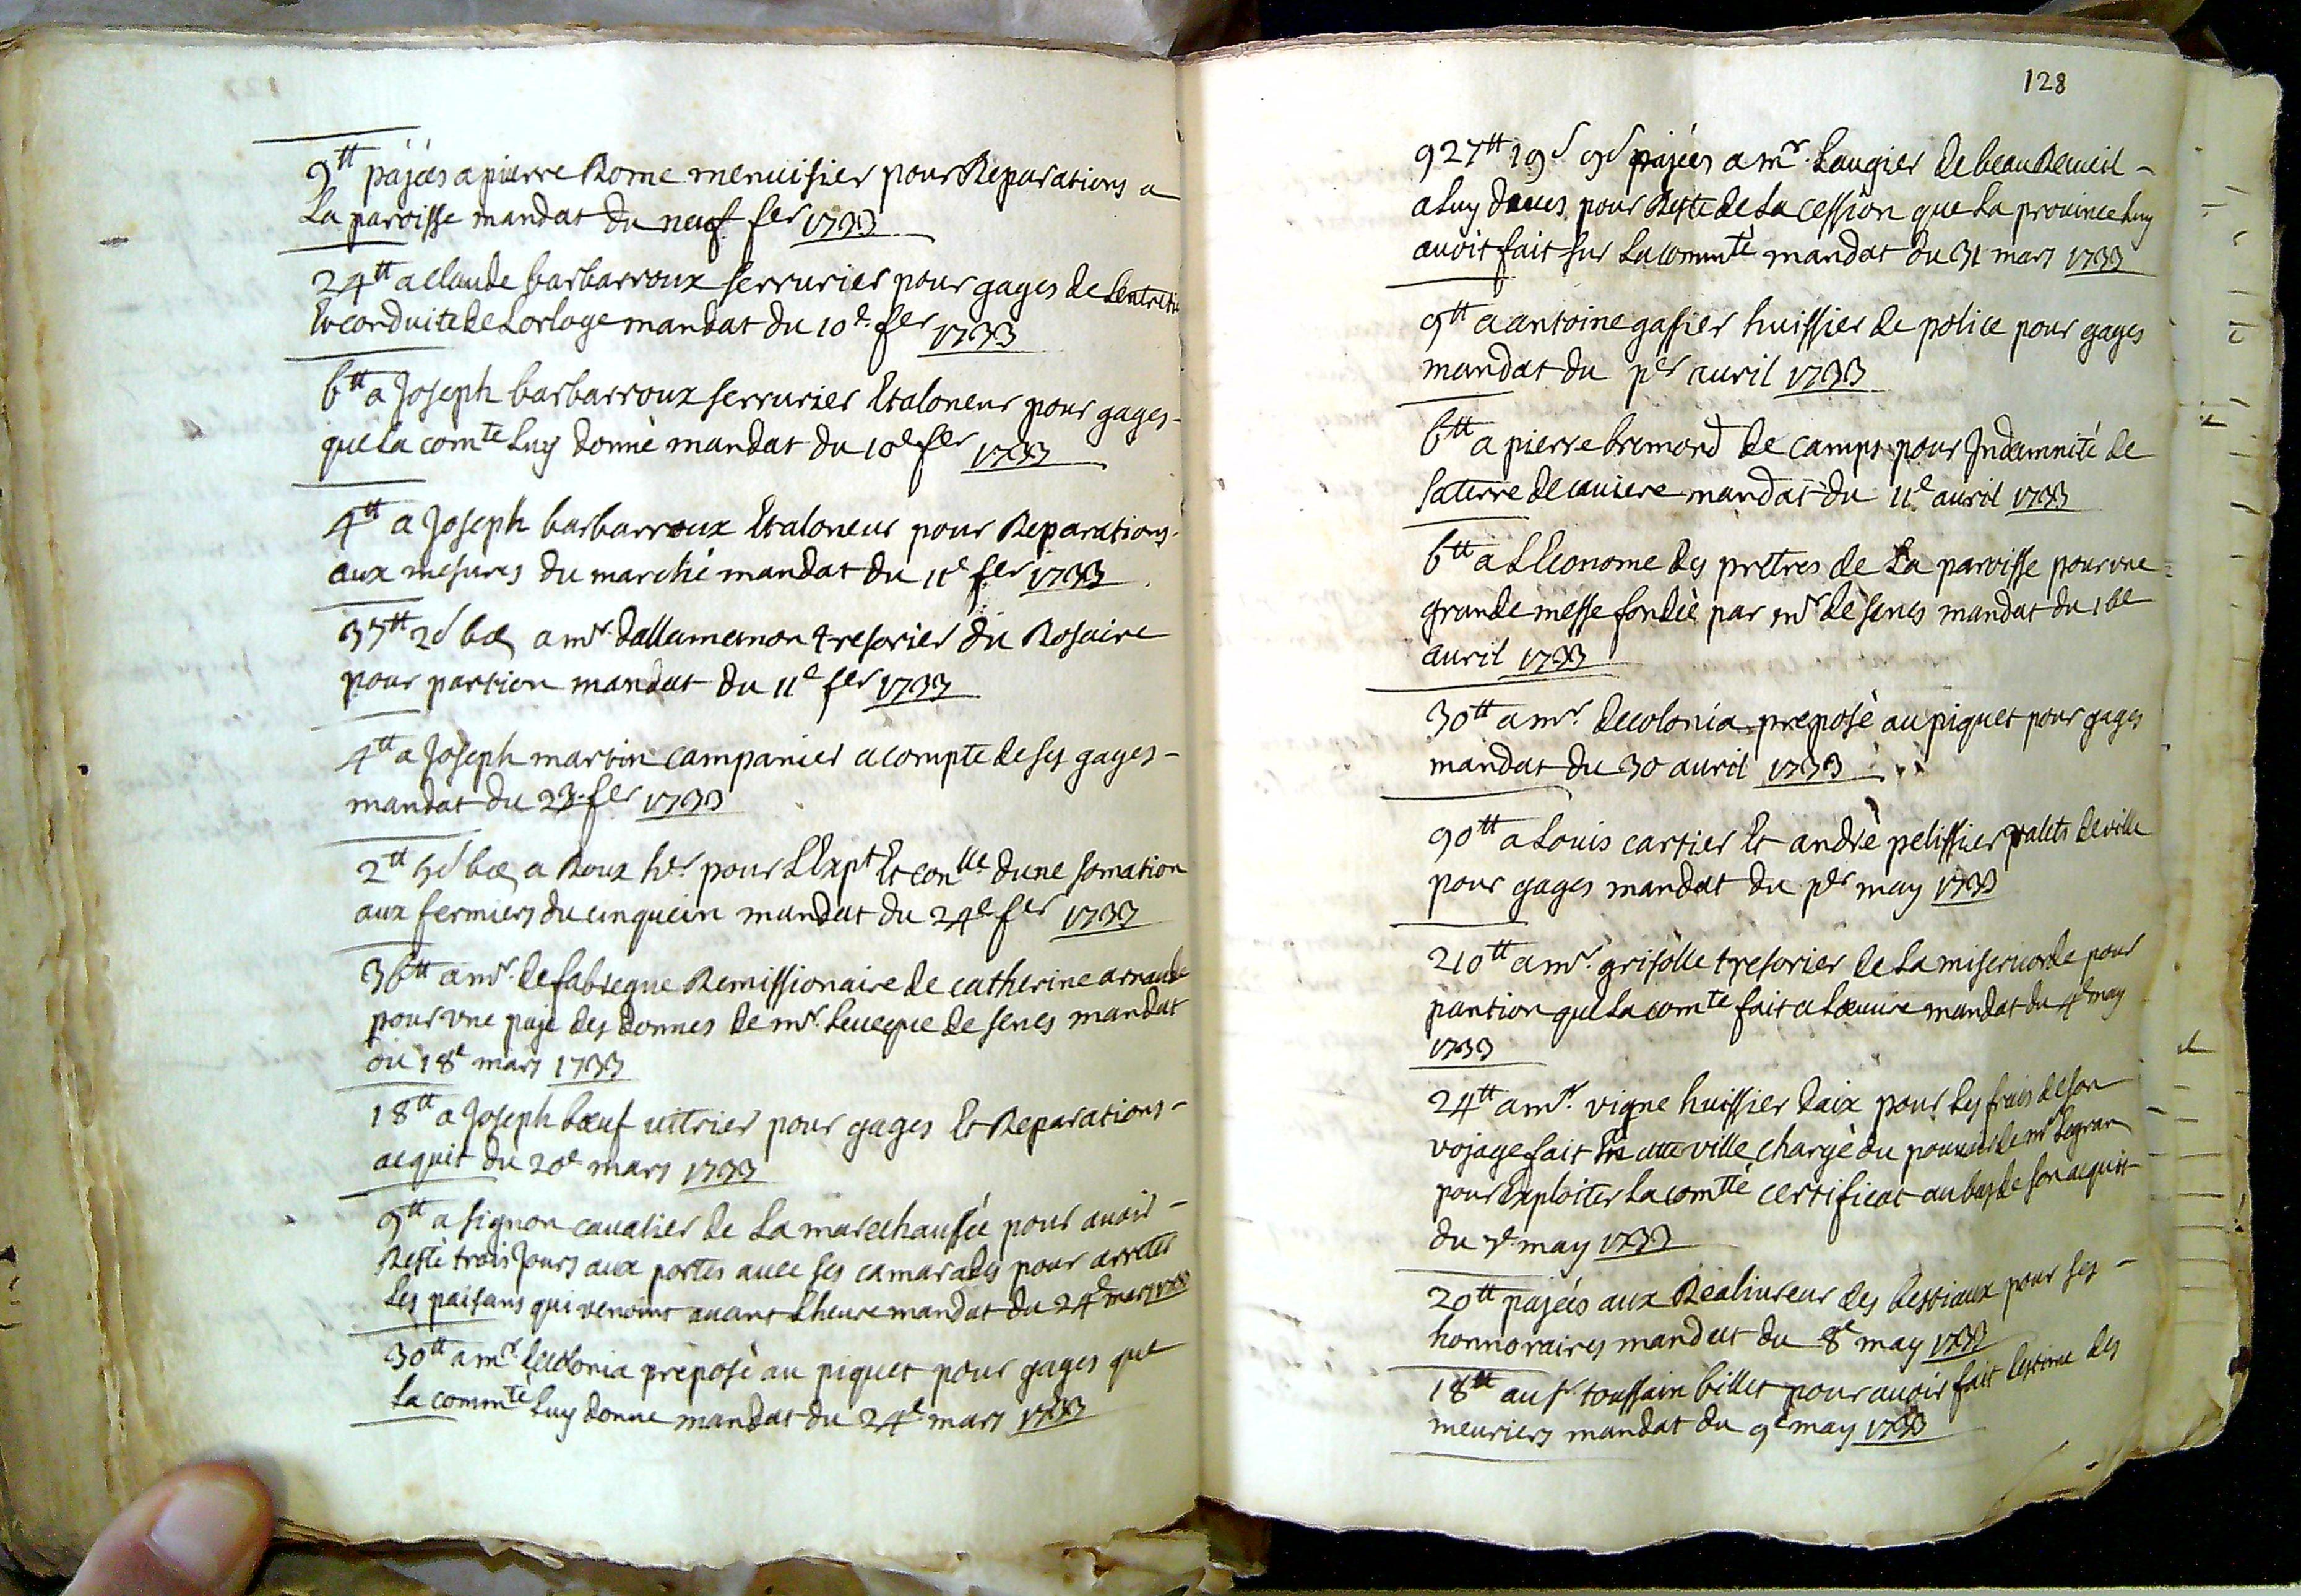 9tt päjées a pierre Rome menuisier pour Reparations a
La paroisse mandat du neuf fer 1733
24tt a claude barbarroux serrurier pour gages de Lentretie
Et conduite de Lorloge mandat du 10e fer 1733
6tt a Joseph barbarroux serrurier Etaloneur pour gages
que La comte Luy donne mandat du 10e fer 1733
4tt a Joseph barbarroux Etaloneur pour Reparations
aux mesures du marché mandat du 11e fer 1733
37tt 2s 6d a mr. dallamanon tresorier du Rosaire
pour partion mandat du 11e fer 1733
4tt a Joseph martin campanier a compte de ses gages
mandat du 23 fer 1733
2tt 5s 6d a Roux hr. pour LExpt Et conlle dune somation
aux fermiers du cinquein mandat du 24e fer 1733
36tt a mr. defabregue Remissionaire de catherine arnaude
pour vne paje des donnes de mr. Leveque de senes mandat
du 18e mars 1733
18tt a Joseph bœuf vitrier pour gages Et Reparations
acquit du 20e mars 1733
9tt a signon cavalier de La marechaussée pour avoir
Resté trois Jours aux portes avec ses camarades pour arreter
Les paisans qui venoint avant Lheure mandat du 24e mars 1733
30tt a mr. decolonia preposé au piquet pour gages que
La commté Luy donne mandat du 24e mars 1733
128
927tt 19s 9d pajées a mr. Laugier de beau Recueil
a Luy deues pour Reste de La cession que La province Luy
avoit fait sur La commté mandat du 31 mars 1733
9tt a antoine gassier huissier de police pour gages
mandat du per avril 1733
6tt a pierre bremond de camps pour Indemnité de
sa terre de cauiere mandat du 11e avril 1733
6tt a LEconome des prêtres de La paroisse pour vne
grande messe fondée par mr de senes mandat du 16e
avril 1733
30tt a mr. decolonia preposé au piquet pour gages
mandat du 30 avril 1733
90tt a Louis cartier Et andré pelissier valets de ville
pour gages mandat du per may 1733
210tt a mr. grisolle tresorier de La misericorde pour
pantion que La comte fait a Lœuvre mandat du 4e may
1733
24tt a mr. vigne huissier daix pour Les frais de son
vojage fait En cette ville chargé du pouvoir de mr Legran
pour Exploiter La comtté certificat au bas de son acquit
du 7e may 1733
20tt pajées aux Réalivreur des bestiaux pour ses
honnoraires mandat du 8e may 1733
18tt au sr. toussain billet pour avoir fait Lestime des
meuriers mandat du 9e may 1733